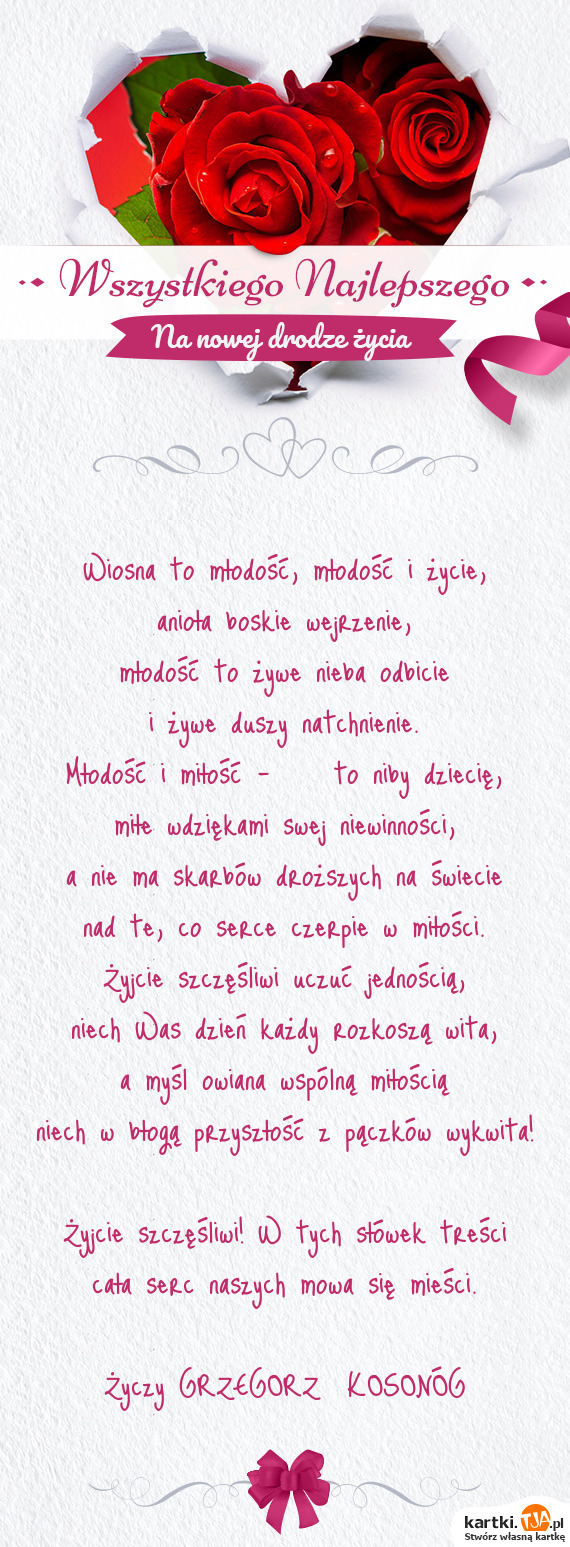 Wszystkiego Najlepszego
Na nowej drodze życia
Wiosna to młodość, młodość i życie,
anioła boskie wejrzenie,
młodość to żywe nieba odbicie
i żywe duszy natchnienie.
Młodość i miłość - to niby dziecię,
miłe wdziękami swej niewinności,
a nie ma skarbów droższych na świecie
nad te, co serce czerpie w miłości.
Żyjcie szczęśliwi uczuć jednością,
niech Was dzień każdy rozkoszą wita,
a myśl owiana wspólną miłością
niech w błogą przyszłość z pączków wykwita!
Żyjcie szczęśliwi! W tych słówek treści
cała serc naszych mowa się mieści.
życzy GRZEGORZ KOSONÓG
kartki.TJA.pl
Stwórz własną kartkę